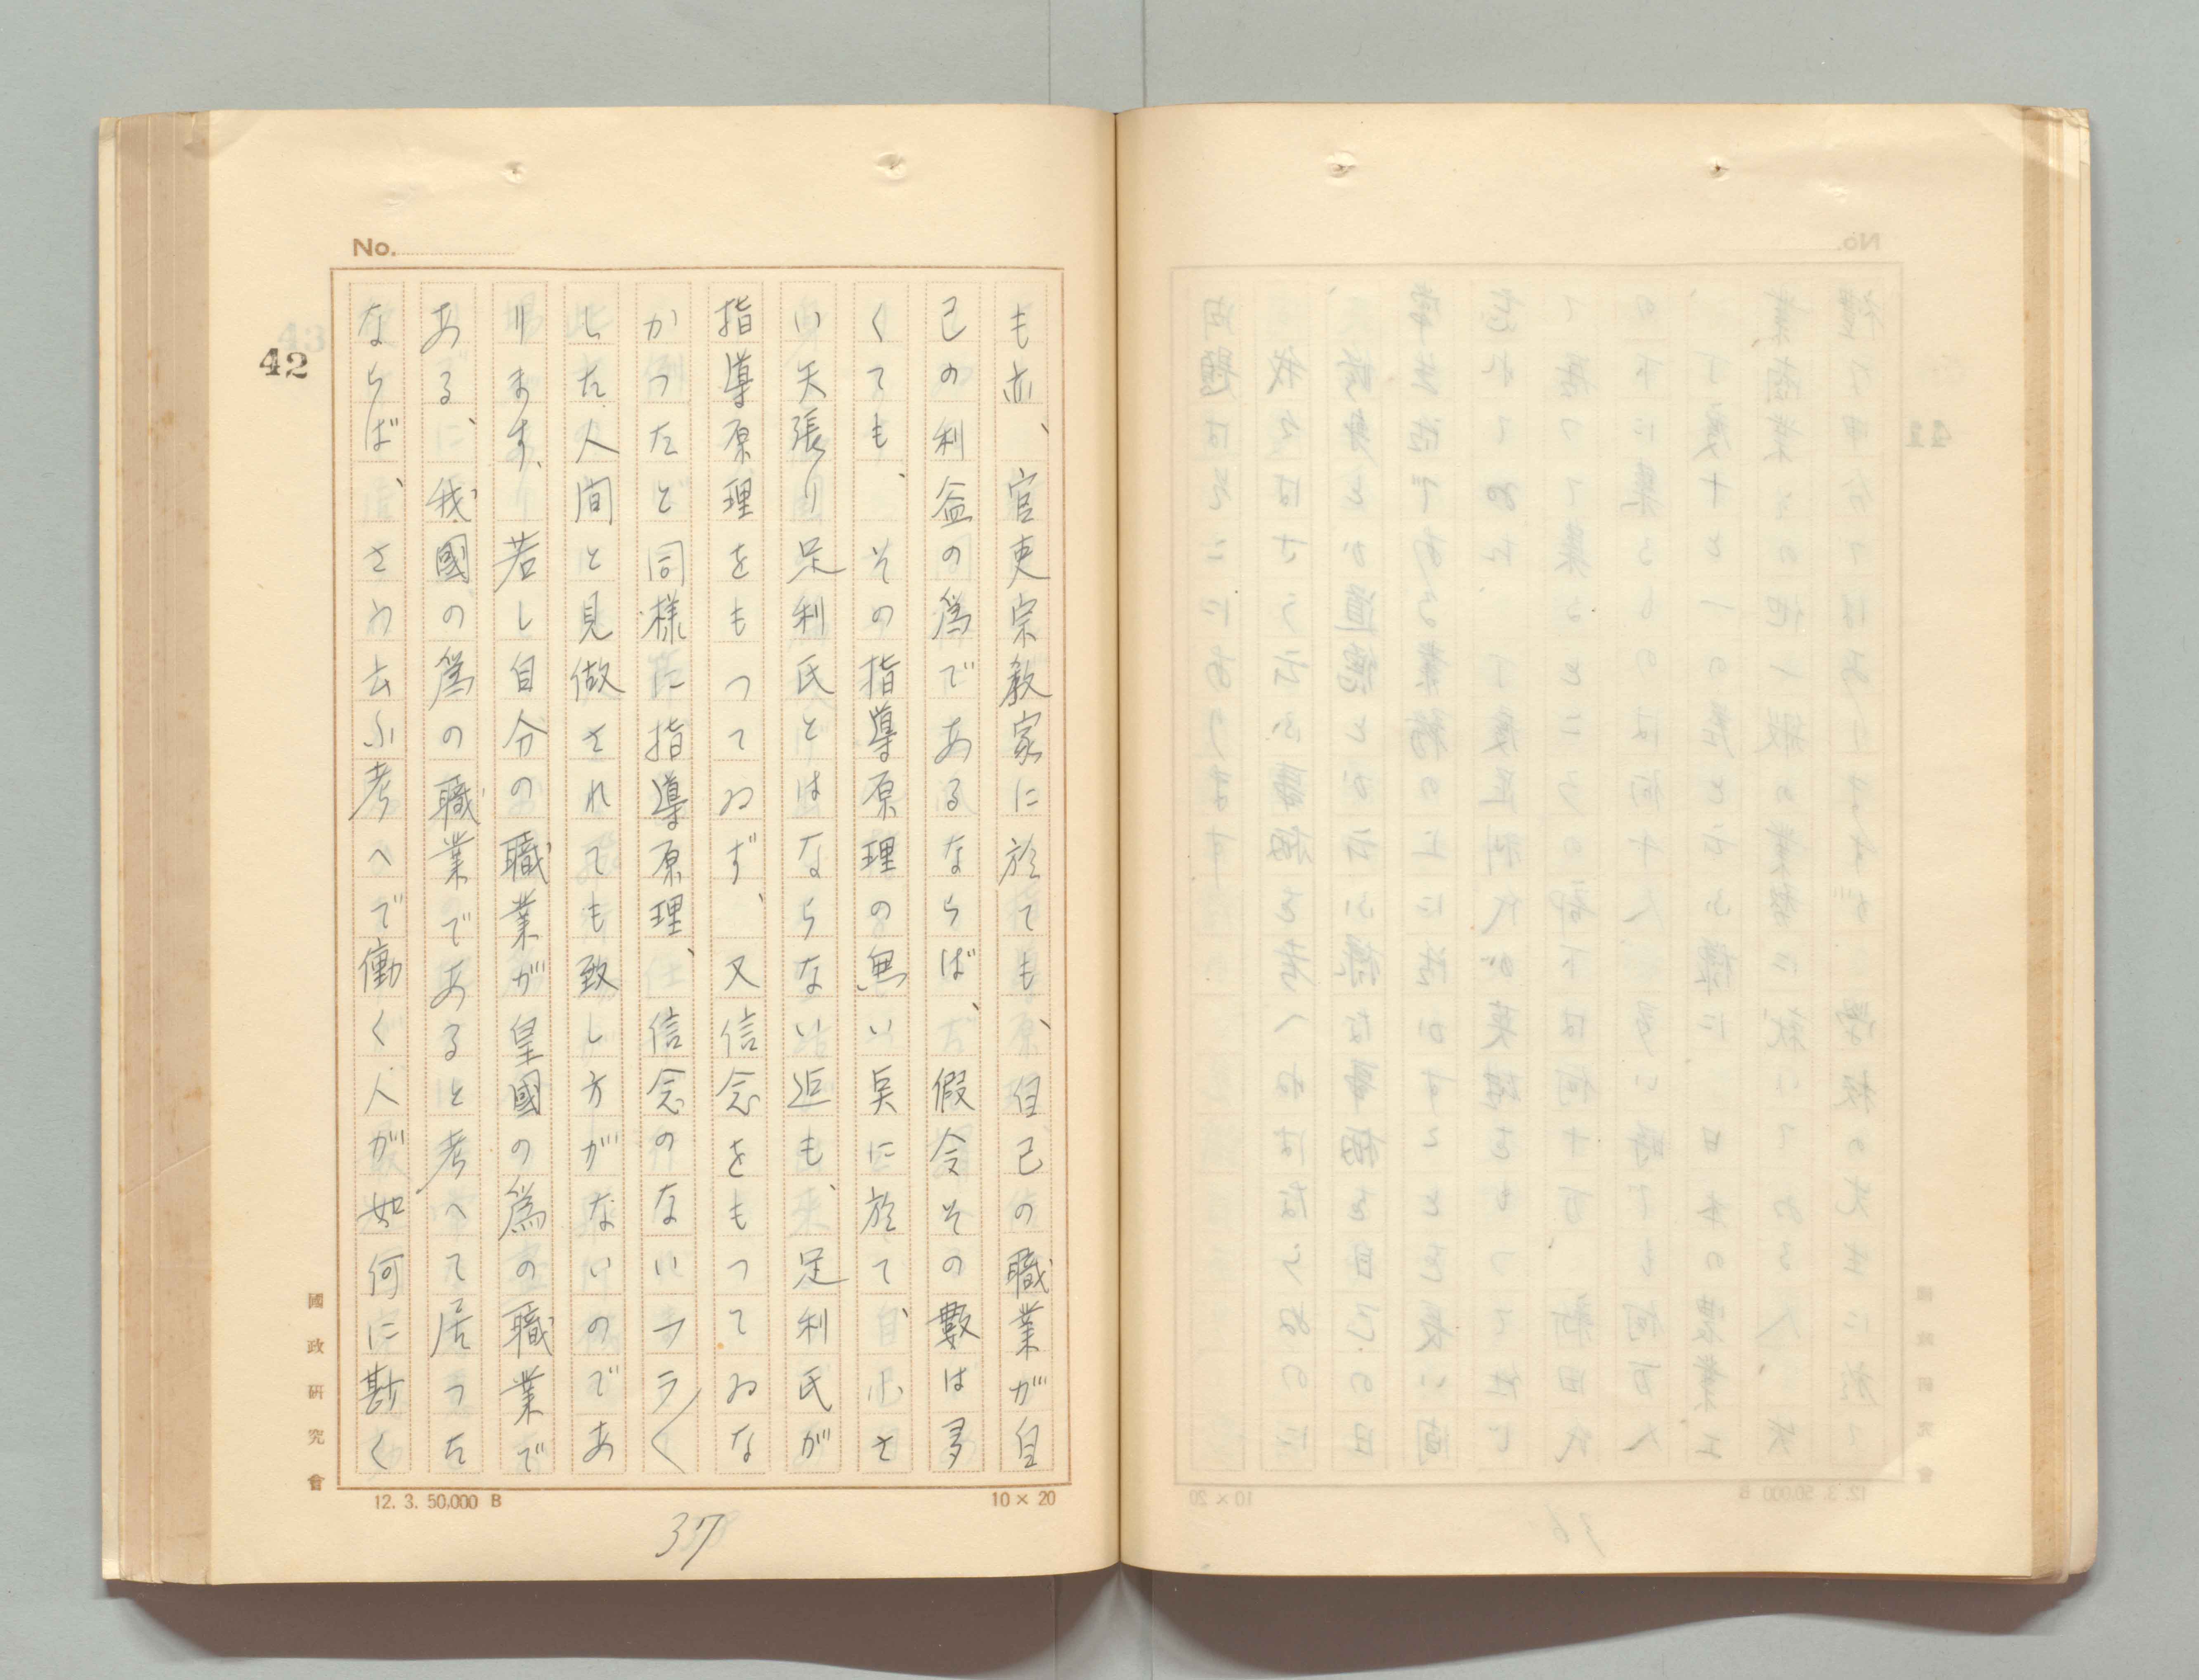 No.
も亦、官吏宗教家に於ても、自己の職業が自
己の利益の爲であるならば、假令その數は多
くても、その指導原理の無い矣に於て、
い矢張り足利氏とはならない迄も、足利氏が
指導原理をもつてゐず、又信念をもつてゐな
かつたと同様に指導原理、信念のないフラ〱
した人間と見做されても致し方がないのであ
ります、若し自分の職業が皇國の爲の職業で
ある、我國の爲の職業であると考へて居つた
ならば、さう云ふ考へで働く人が如何に尠く
42
國政研究會
12. 3. 50,000 B
10 × 20
37